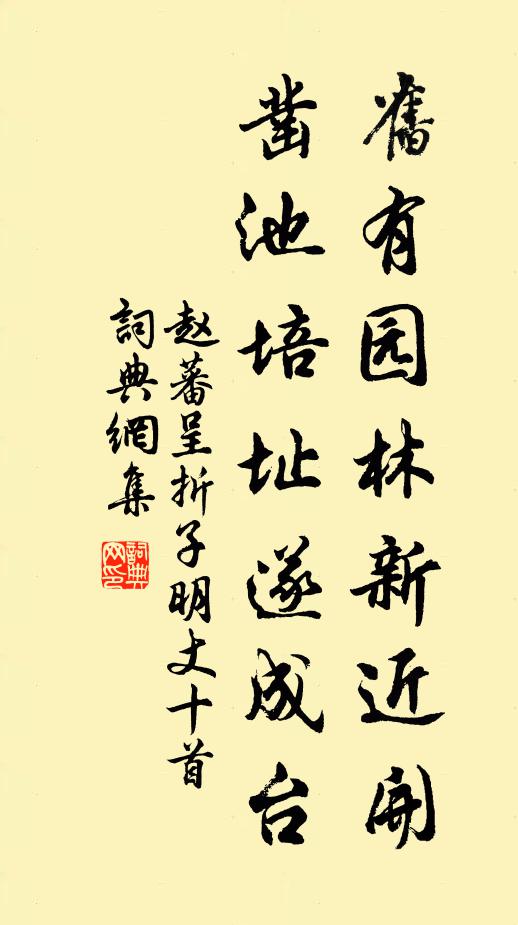 舊有园林新近開
凿池培址遂成台
赵蕃呈折子明丈十首
詞典網集
詞典网印